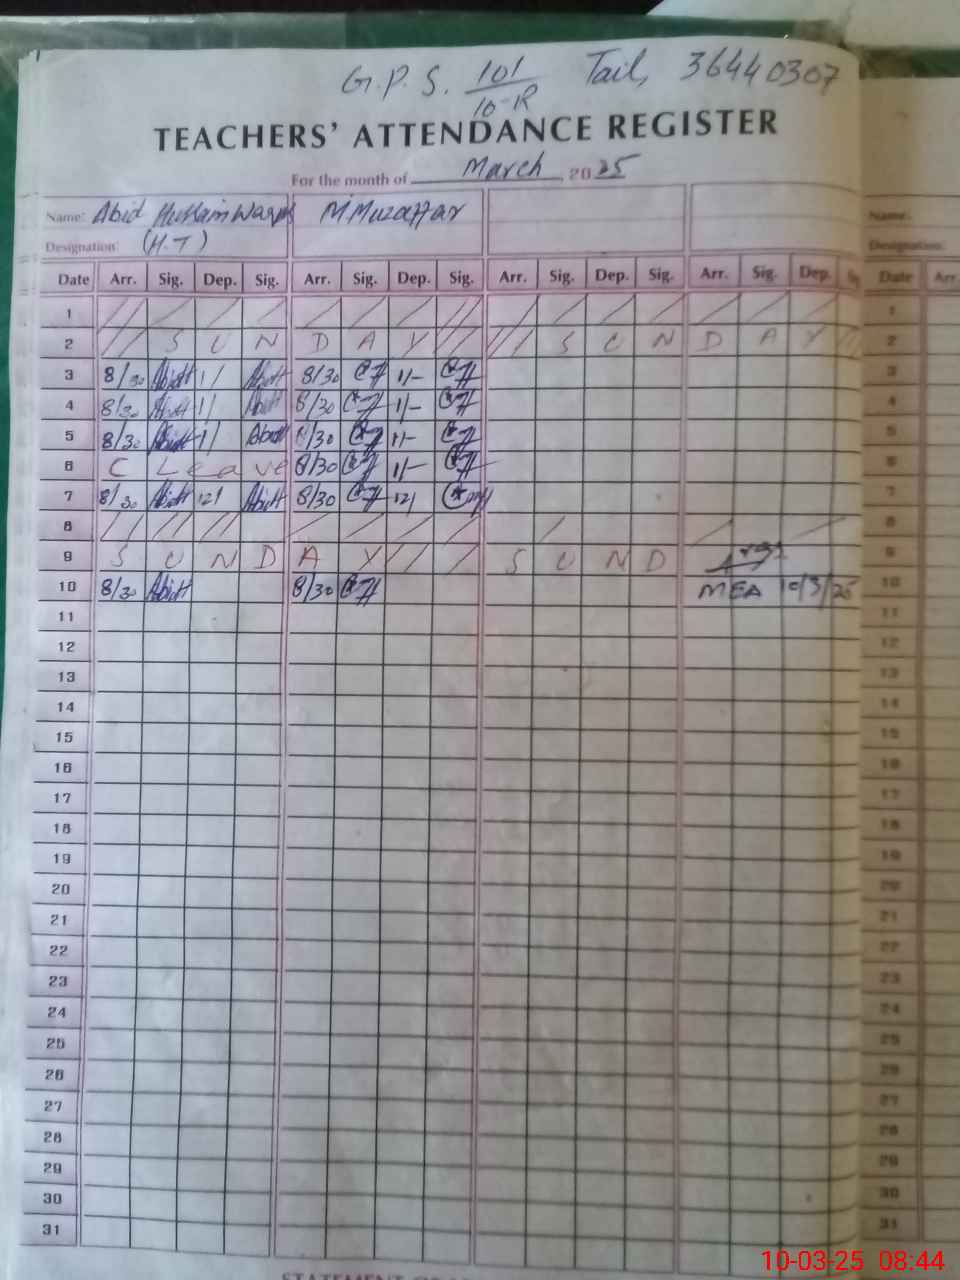 G.P.S. 101/10-R Tail, 36440307
TEACHERS' ATTENDANCE REGISTER
For the month of March, 2025
Name: Abid Hussain M.Muzaffar Name:
Designation: (H.T) Designation:
Date Arr. Sig. Dep. Sig. Arr. Sig. Dep. Sig. Arr. Sig. Dep. Sig. Arr. Sig. Dep. Sig. Date Arr.
1 1
2 S U N D A Y S U N D A Y 2
3 8/30 Abid 1/ Abid 8/30 1/- 3
4 8/30 Abid 1/ Abid 8/30 1/- 4
5 8/30 Abid 1/ Abid 8/30 1/- 5
6 C Leave 8/30 1/- 6
7 8/30 Abid 12/ Abid 8/30 12/ 7
8 8
9 S U N D A Y S U N D 9
10 8/30 Abid 8/30 MEA 10/3/25 10
11 11
12 12
13 13
14 14
15 15
16 16
17 17
18 18
19 19
20 20
21 21
22 22
23 23
24 24
25 25
26 26
27 27
28 28
29 29
30 30
31 31
10-03-25 08:44